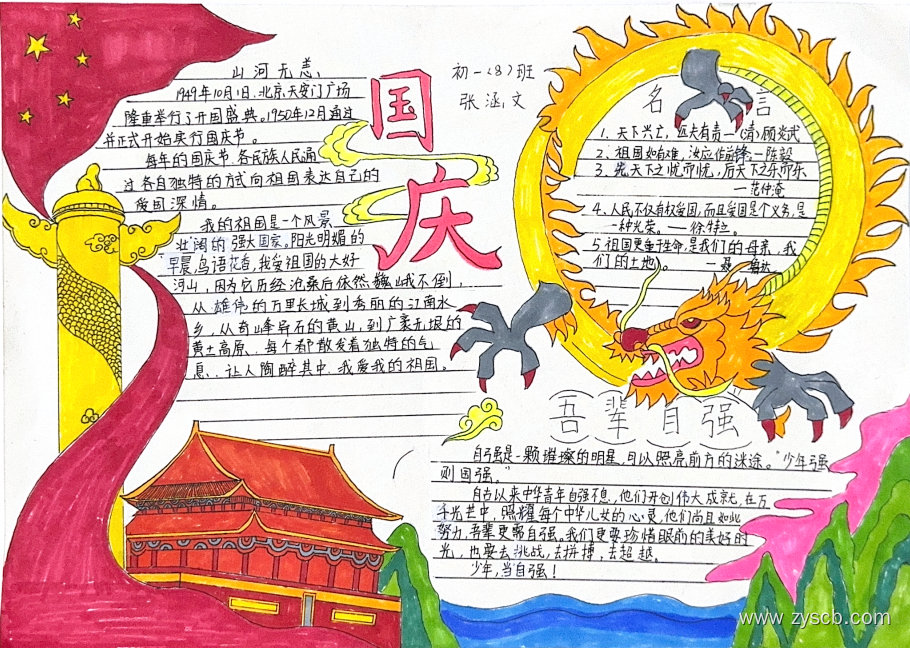 山河无恙
1949年10月1日.北京天安门广场
隆重举行了开国盛典。1950年12月通过
并正式开始实行国庆节。
每年的国庆节.各民族人民通
过各自独特的方式向祖国表达自己的
爱国深情。
我的祖国是一个风景
壮阔的强大国家。阳光明媚的
早晨鸟语花香,我爱祖国的大好
河山,因为它历经沧桑后依然巍峨不倒,
从雄伟的万里长城到秀丽的江南水
乡,从奇峰异石的黄山,到广袤无垠的
黄土高原.每个都散发着独特的气
息.让人陶醉其中.我爱我的祖国。
国庆
初一(8)班
张涵文
名言
1、天下兴亡,匹夫有责—(清)顾炎武
2、祖国如有难,汝应作前锋.—陈毅
3、先天下之忧而忧,后天下之乐而乐
—范仲淹
4、人民不仅有权爱国,而且爱国是个义务,是
一种光荣。——徐特立。
5.祖国更重于生命,是我们的母亲,我
们的土地。
吾辈自强
自强是一颗璀璨的明星,可以照亮前方的迷途。"少年强
则国强。"
自古以来中华青年自强不息,他们开创伟大成就,在万
千光芒中,照耀每个中华儿女的心灵,他们尚且如此
努力,吾辈更需自强,我们更要珍惜眼前的美好时
光,也要去挑战,去拼搏,去超越.
少年,当自强!
www.zyscb.com